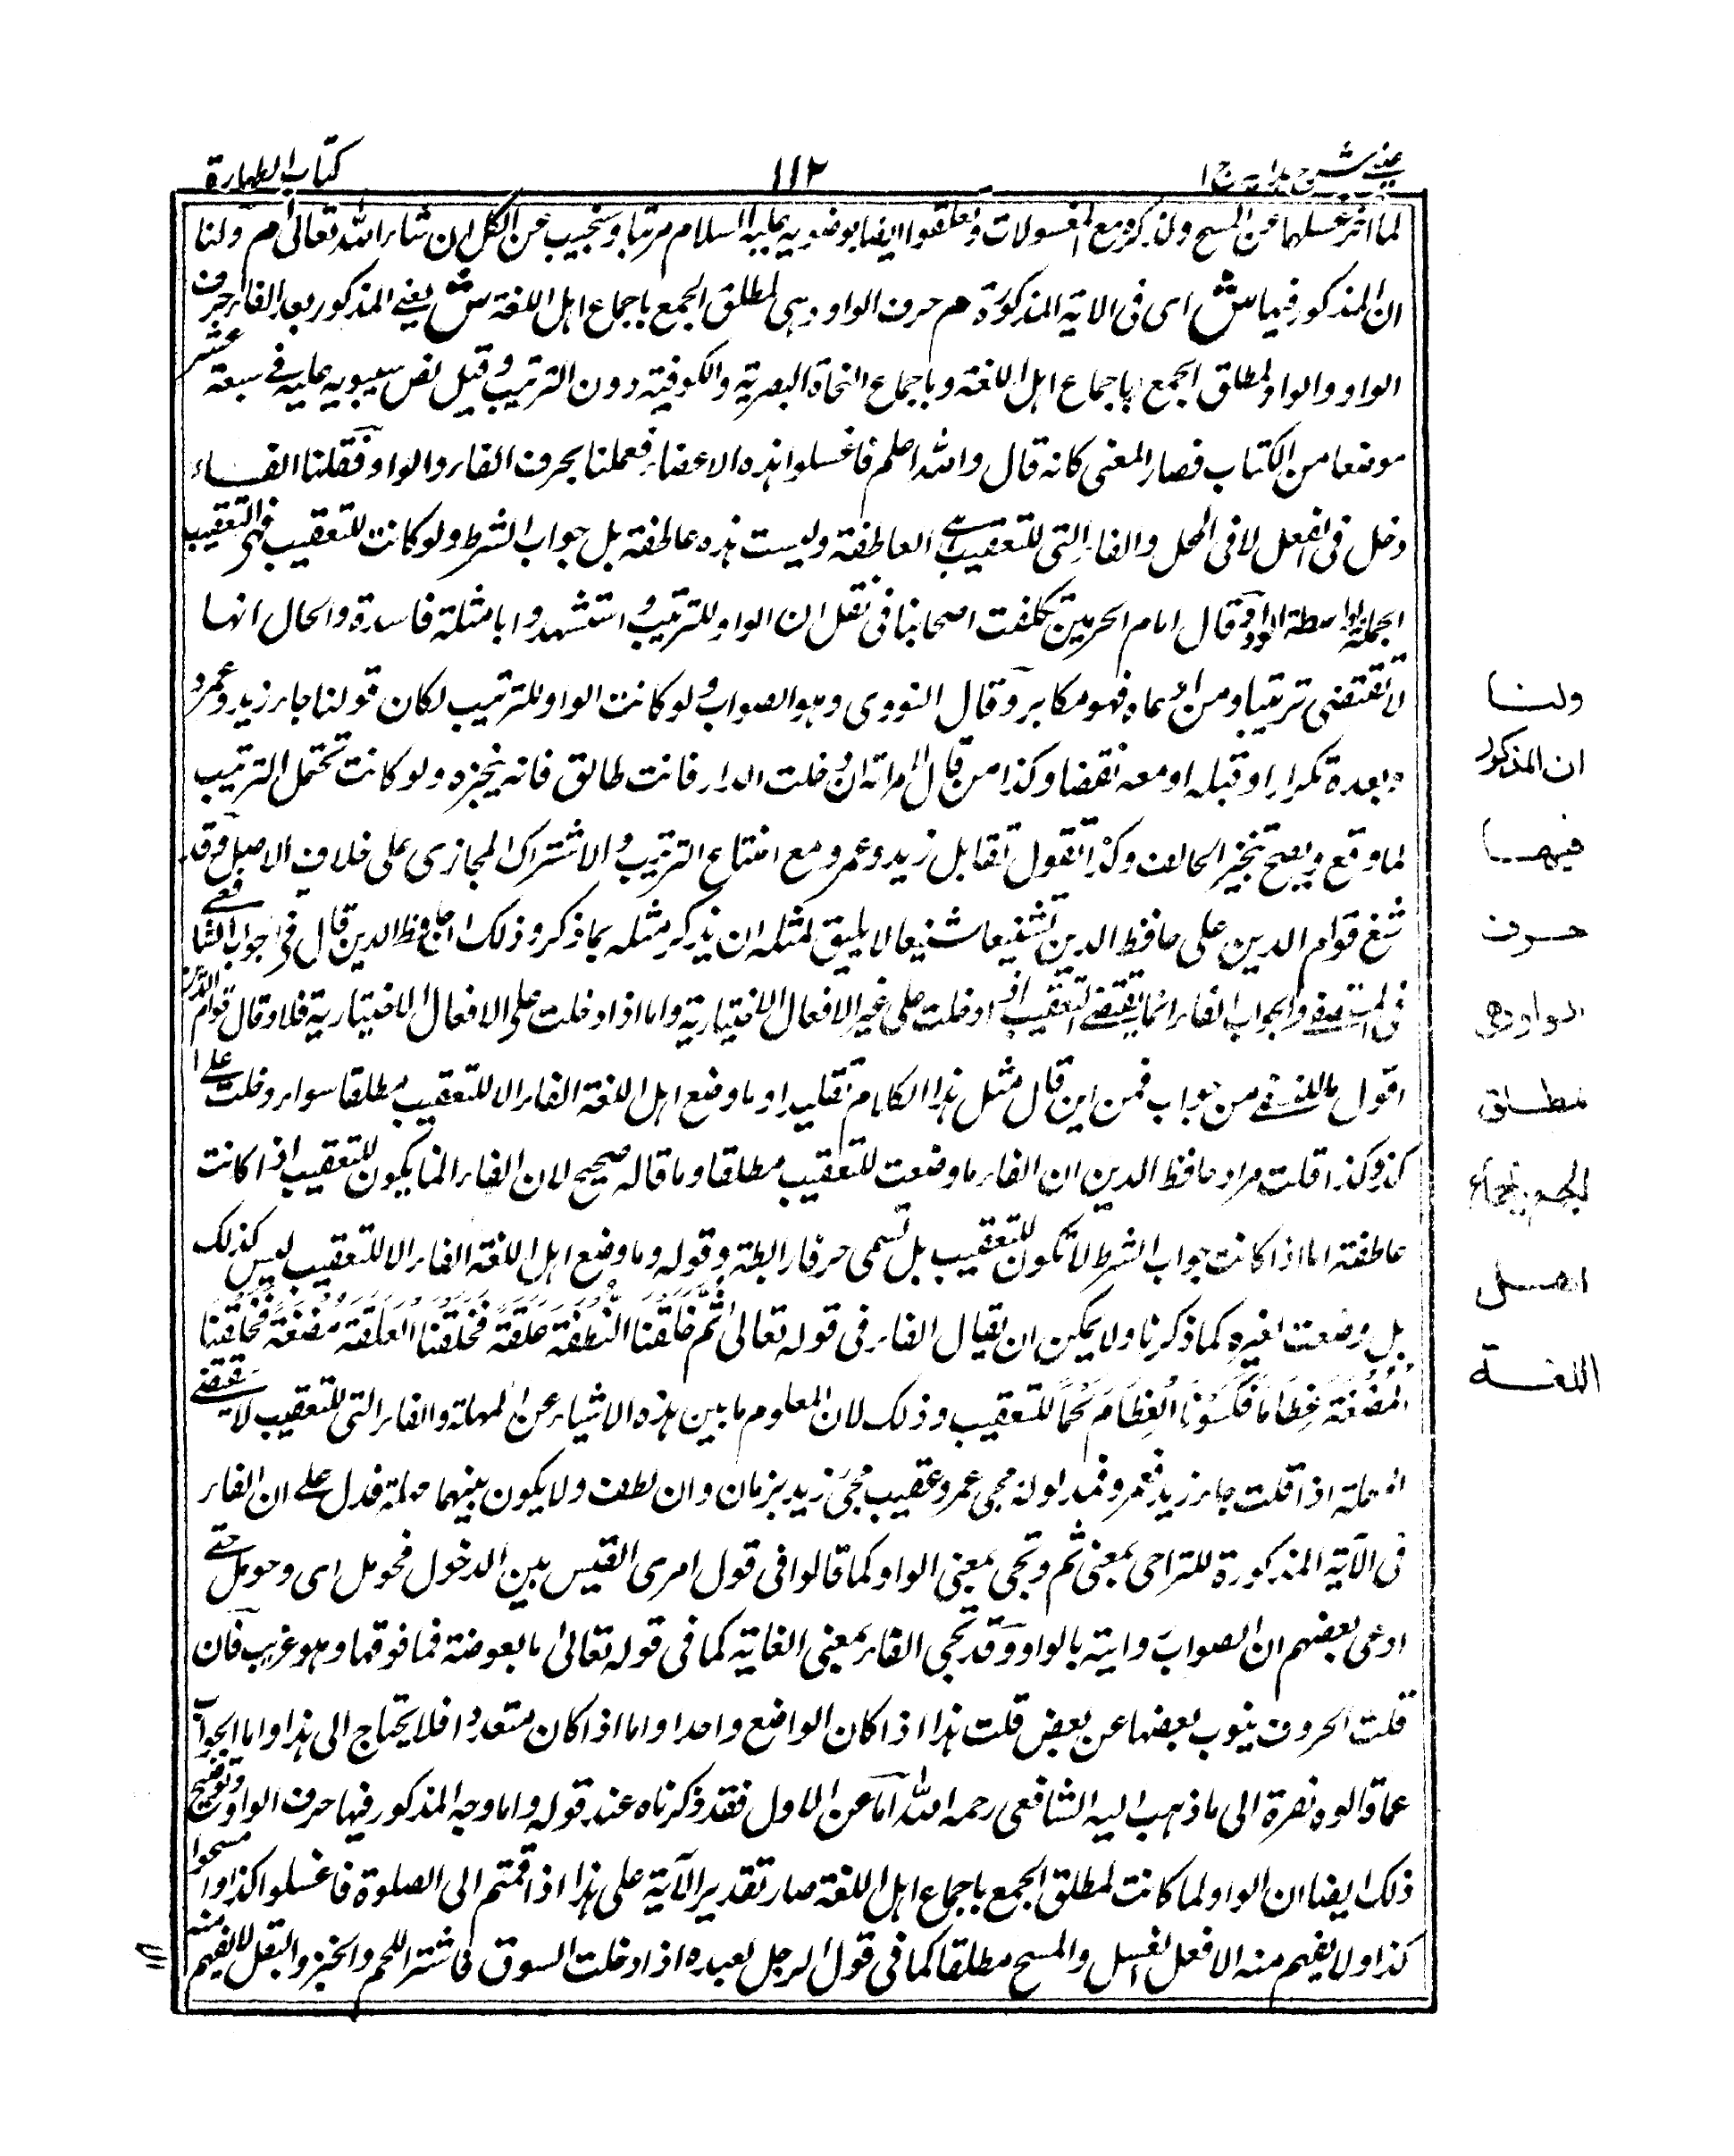 عينى شرح هدايه ج ١
١١٢
كتاب الطهارة
لما اخر غسلها عن المسح ولذكره مع المغسولات وتعلقوا ايضا بوضوئه عليه السلام مرتبا وسنجيب عن الكل ان شاء الله تعالى م ولنا
ان المذكور فيها ش اى فى الاية المذكورة م حرف الواو وهى لمطلق الجمع باجماع اهل اللغة ش يعنى المذكور بعد الفاء حرف
الواو والواو لمطلق الجمع باجماع اهل اللغة وباجماع النحاة البصرية والكوفية دون الترتيب وقيل نص سيبويه عليه فى سبعة عشر
موضعا من الكتاب فصار المعنى كانه قال والله اعلم فاغسلوا هذه الاعضاء فعملنا بحرف الفاء والواو فقلنا الفاء
دخل فى الفعل لا فى المحل والفاء التى للتعقيب هى العاطفة وليست هذه عاطفة بل جواب الشرط ولو كانت للتعقيب فهى لتعقيب
الجملة بواسطة الواو وقال امام الحرمين تكلفت اصحابنا فى نقل ان الواو للترتيب واستشهدوا بامثلة فاسدة والحال انها
لا تقتضى ترتيبا ومن ادعاه فهو مكابر وقال النووى وهو الصواب ولو كانت الواو للترتيب لكان قولنا جاء زيد وعمرو
بعده تكرارا وقبله او معه نقضا وكذا من قال لامراته ان دخلت الدار فانت طالق فانه ينجزه ولو كانت تحتمل الترتيب
لما وقع ويصح تنجيز الحالف وكذا تقول تقابل زيد وعمرو مع امتناع الترتيب والاشتراك المجازى على خلاف الاصل وقد
شنع قوام الدين على حافظ الدين تشنيعا شنيعا لا يليق لمثله ان يذكر مثله بما ذكر وذلك ان حافظ الدين قال فى جواب الشافعى
فى المستصفى والجواب الفاء انما يقتضى التعقيب اذا دخلت على غير الافعال الاختيارية واما اذا دخلت على الافعال الاختيارية فلا وقال قوام الدين
اقول ما للنسفى من جواب فمن اين قال مثل هذا الكلام تقليدا وما وضع اهل اللغة الفاء الا للتعقيب مطلقا سواء دخلت على
كذا وكذا قلت مراد حافظ الدين ان الفاء ما وضعت للتعقيب مطلقا وما قاله صحيح لان الفاء انما يكون للتعقيب اذا كانت
عاطفة اما اذا كانت جواب الشرط لا تكون للتعقيب بل تسمى حرفا رابطة وقوله وما وضع اهل اللغة الفاء الا للتعقيب ليس كذلك
بل وضعت لغيره كما ذكرنا ولا يمكن ان يقال الفاء فى قوله تعالى ثُمَّ خَلَقْنَا النُّطْفَةَ عَلَقَةً فَخَلَقْنَا الْعَلَقَةَ مُضْغَةً فَخَلَقْنَا
الْمُضْغَةَ عِظَامًا فَكَسَوْنَا الْعِظَامَ لَحْمًا للتعقيب وذلك لان المعلوم ما بين هذه الاشياء عن المهلة والفاء التى للتعقيب لا يقتضى
المهلة اذا قلت جاء زيد فعمرو فمدلوله مجى عمرو عقيب مجىء زيد بزمان وان لطف ولا يكون بينهما مهلة فدل على ان الفاء
فى الآية المذكورة للتراخى بمعنى ثم وتجى بمعنى الواو كما قالوا فى قول امرى القيس بين الدخول فحومل اى وحومل حتى
ادعى بعضهم ان الصواب روايته بالواو وقد تجى الفاء بمعنى الغاية كما فى قوله تعالى ما بعوضة فما فوقها وهو غريب فان
قلت الحروف ينوب بعضها عن بعض قلت هذا اذا كان الواضع واحدا واما اذا كان متعددا فلا يحتاج الى هذا واما الجواب
عما قالوه نصرة الى ما ذهب اليه الشافعى رحمه الله اما عن الاول فقد ذكرناه عند قوله واما وجه المذكور فيها حرف الواو وتوضيح
ذلك ايضا ان الواو لما كانت لمطلق الجمع باجماع اهل اللغة صار تقدير الآية على هذا اذا قمتم الى الصلوة فاغسلوا كذا وامسحوا
كذا ولا يفهم منه الا فعل الغسل والمسح مطلقا كما فى قول الرجل لعبده اذا دخلت السوق فاشتر اللحم والخبز والبقل لا يفهم منه
ولنا
ان المذكور
فيها
حرف
الواو وهى
لمطلق
الجمع باجماع
اهل
اللغة